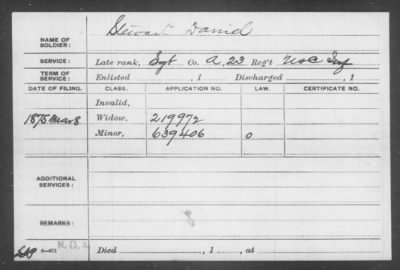 NAME OF SOLDIER: Stewart Daniel
SERVICE: Late rank, Sgt Co. A, 23 Reg't USC Inf
TERM OF SERVICE: Enlisted , 1 Discharged , 1
DATE OF FILING. CLASS. APPLICATION NO. LAW. CERTIFICATE NO.
Invalid,
1875 Mar 8 Widow, 219972
Minor, 639406 0
ADDITIONAL SERVICES:
REMARKS:
Died , 1 , at